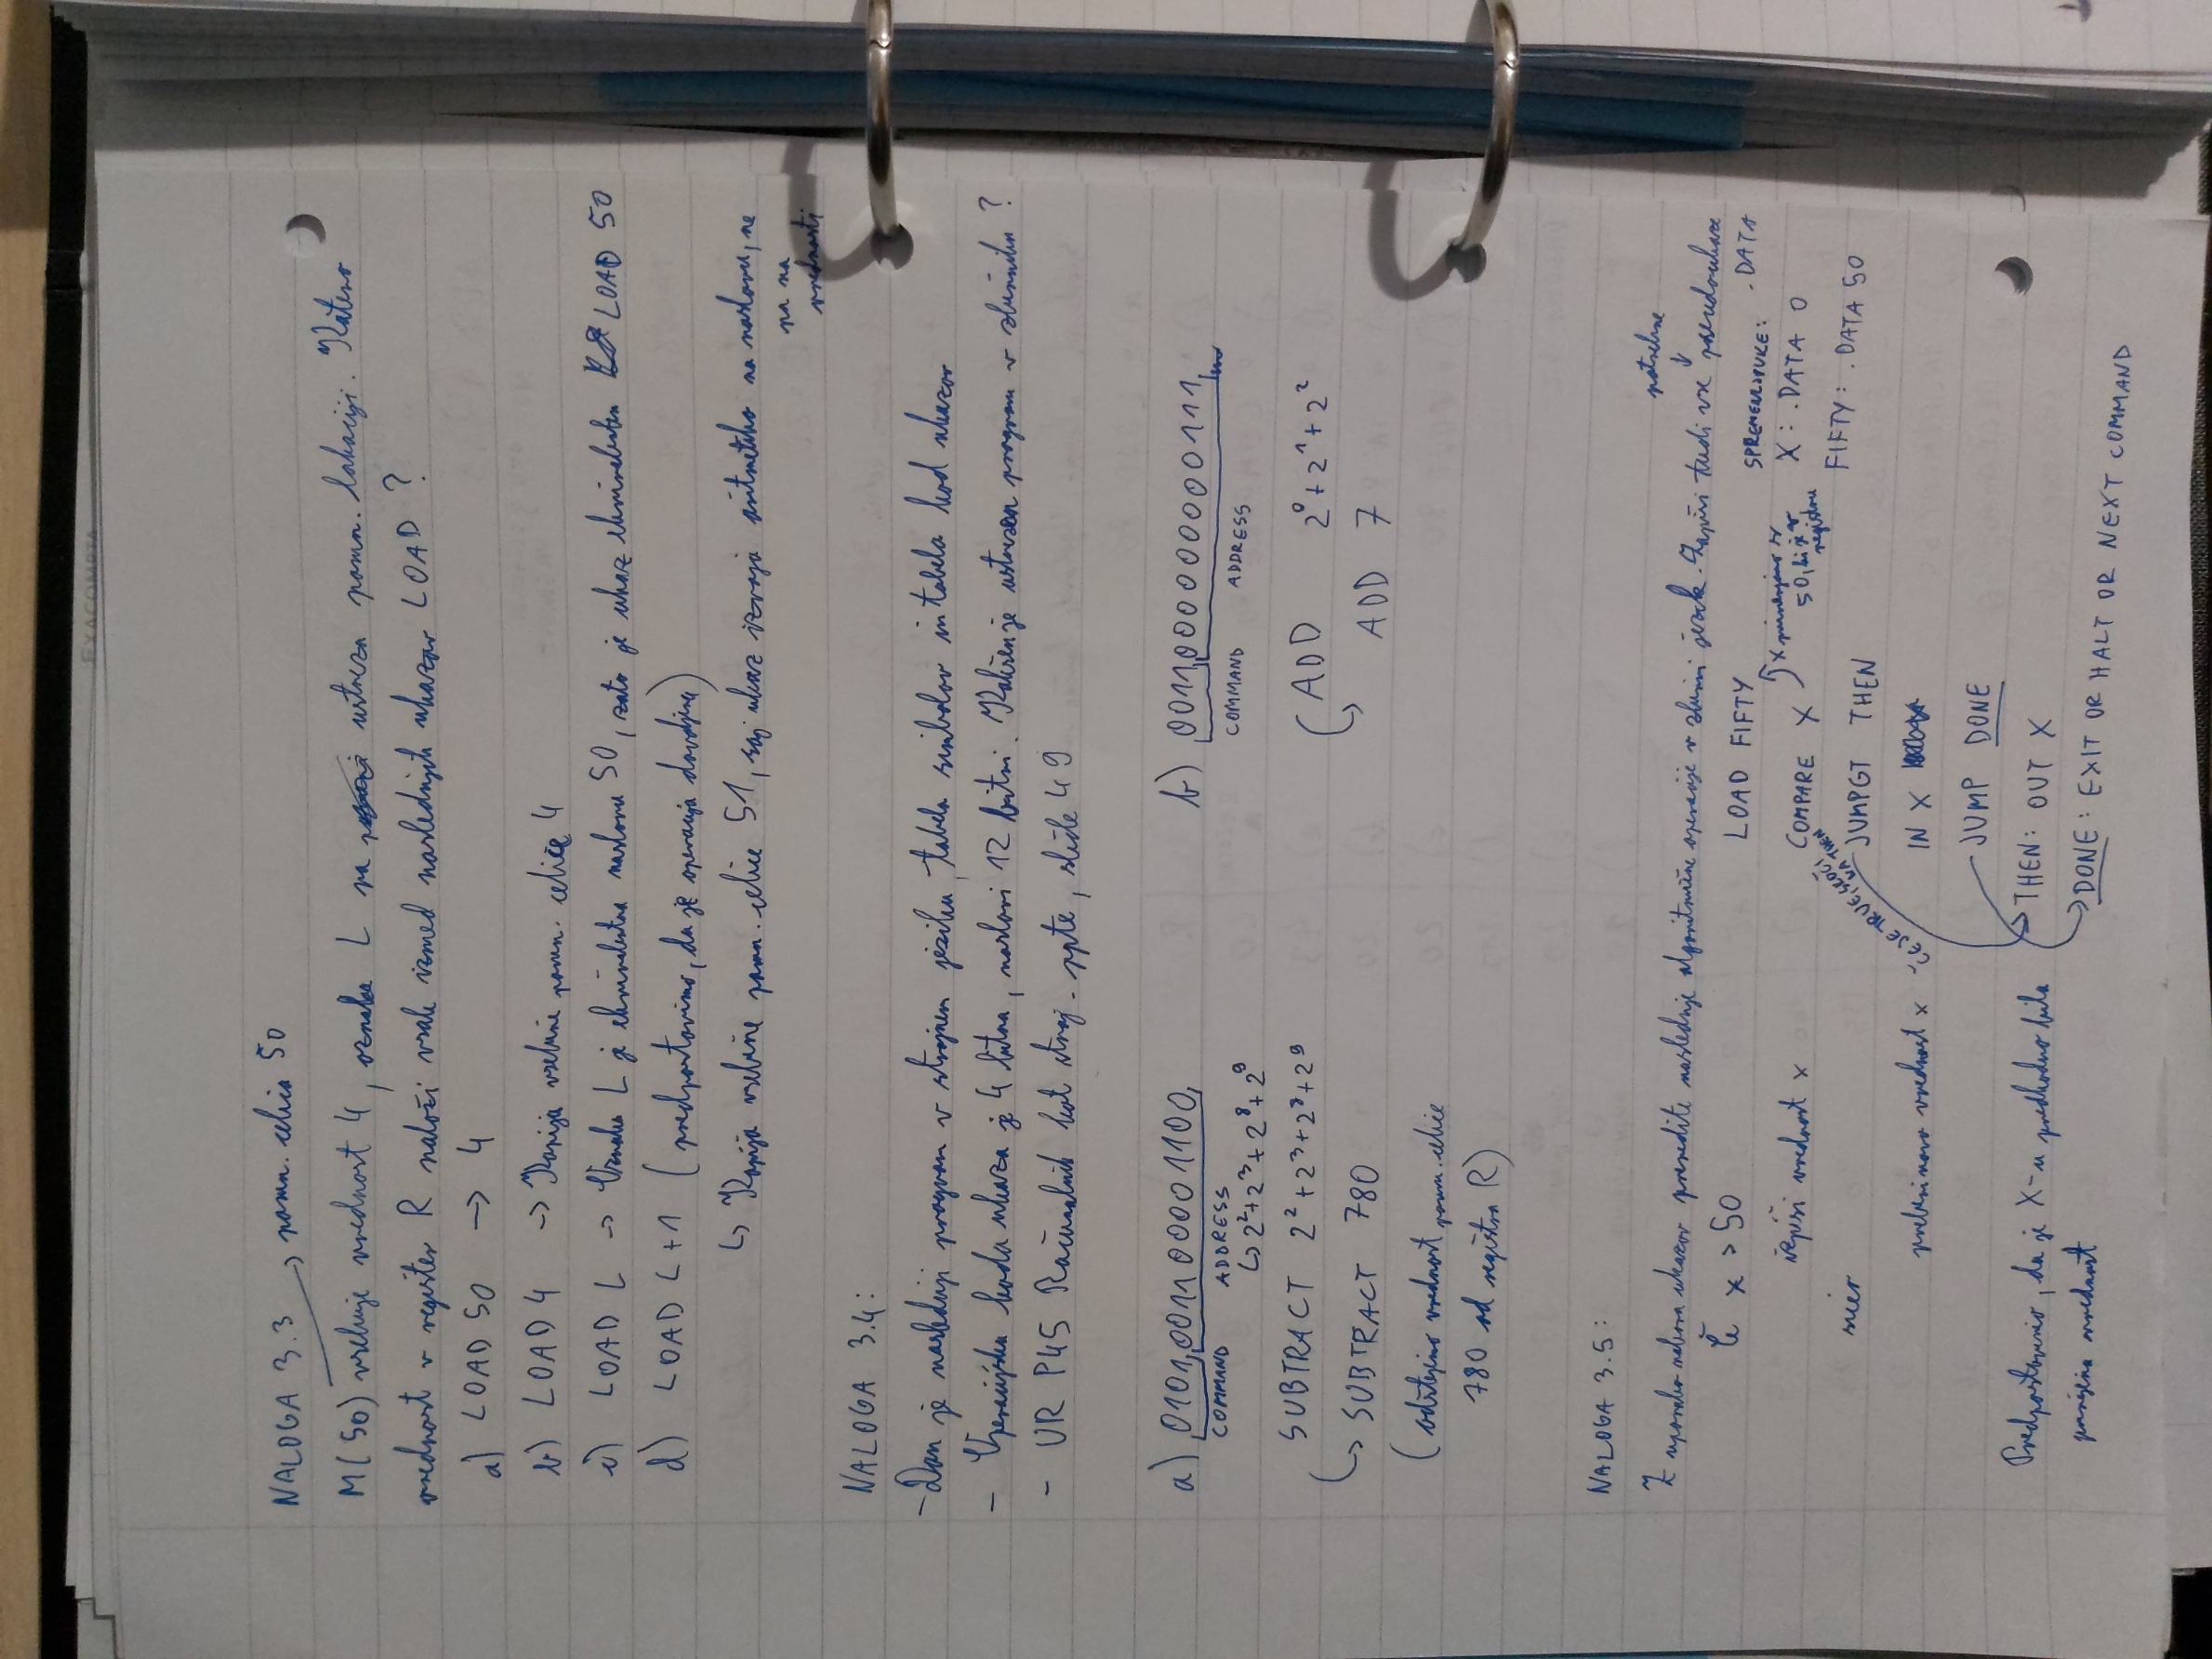 EXACOMPTA
NALOGA 3.3 → pomn. celica 50
M(50) vsebuje vrednost 4, oznaka L pa ustreza pomn. lokaciji. Katero
vrednost v register R naloži vsak izmed naslednjih ukazov LOAD?
a) LOAD 50 → 4
b) LOAD 4 → Kopija vsebine pomn. celice 4
c) LOAD L → Oznaka L je ekvivalentna naslovu 50, zato je ukaz ekvivalenten LOAD 50
d) LOAD L+1 (predpostavimo, da je operacija dovoljena)
↳ Kopija vsebine pomn. celice 51, saj ukaz izvaja aritmetiko na naslovu, ne
pa na
vrednosti
NALOGA 3.4:
- Dan je naslednji program v strojnem jeziku, tabela simbolov in tabela kod ukazov
- Operacijska koda ukaza je 4 bitna, naslovi 12 bitni. Kakšen je ustrezen program v zbirniku?
- UR P45 Računalnik kot stroj. ppte, slide 49
a) 0101 0011 0000 1100
COMMAND ADDRESS
↳ 2²+2³+2⁸+2⁹
SUBTRACT 2²+2³+2⁸+2⁹
↳ SUBTRACT 780
(odštejemo vrednost pomn. celice
780 od registra R)
b) 0011 000000000111
COMMAND ADDRESS
ADD 2⁰+2¹+2²
ADD 7
NALOGA 3.5:
potrebne
↓
Z uporabo nabora ukazov prevedite naslednje algoritmične operacije v zbirni jezik. Zapiši tudi vse psevdoukaze
.DATA
Če x > 50
izpiši vrednost x
sicer
preberi novo vrednost x
Predpostavimo, da je X-u predhodno bila
prirejena vrednost
LOAD FIFTY
COMPARE X
x primerjamo s
50, ki je v
registru
JUMPGT THEN
ČE JE TRUE, SKOČI
NA THEN
IN X
JUMP DONE
THEN: OUT X
DONE: EXIT OR HALT OR NEXT COMMAND
SPREMENLJIVKE:
X: .DATA 0
FIFTY: .DATA 50